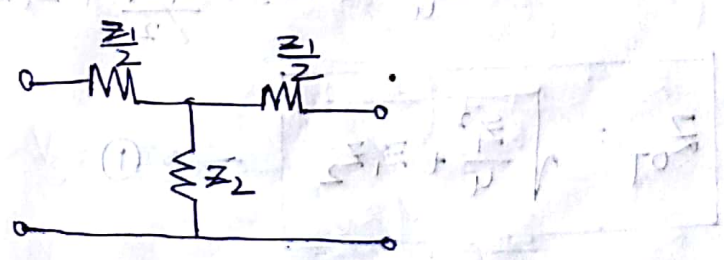 Z1/2
Z1/2
Z2